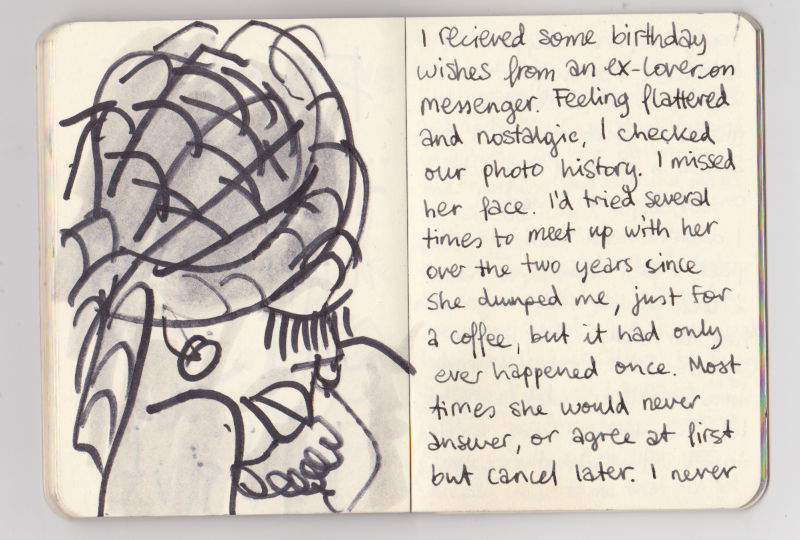 I recieved some birthday
wishes from an ex-lover on
messenger. Feeling flattered
and nostalgic, I checked
our photo history. I missed
her face. I'd tried several
times to meet up with her
over the two years since
she dumped me, just for
a coffee, but it had only
ever happened once. Most
times she would never
answer, or agree at first
but cancel later. I never